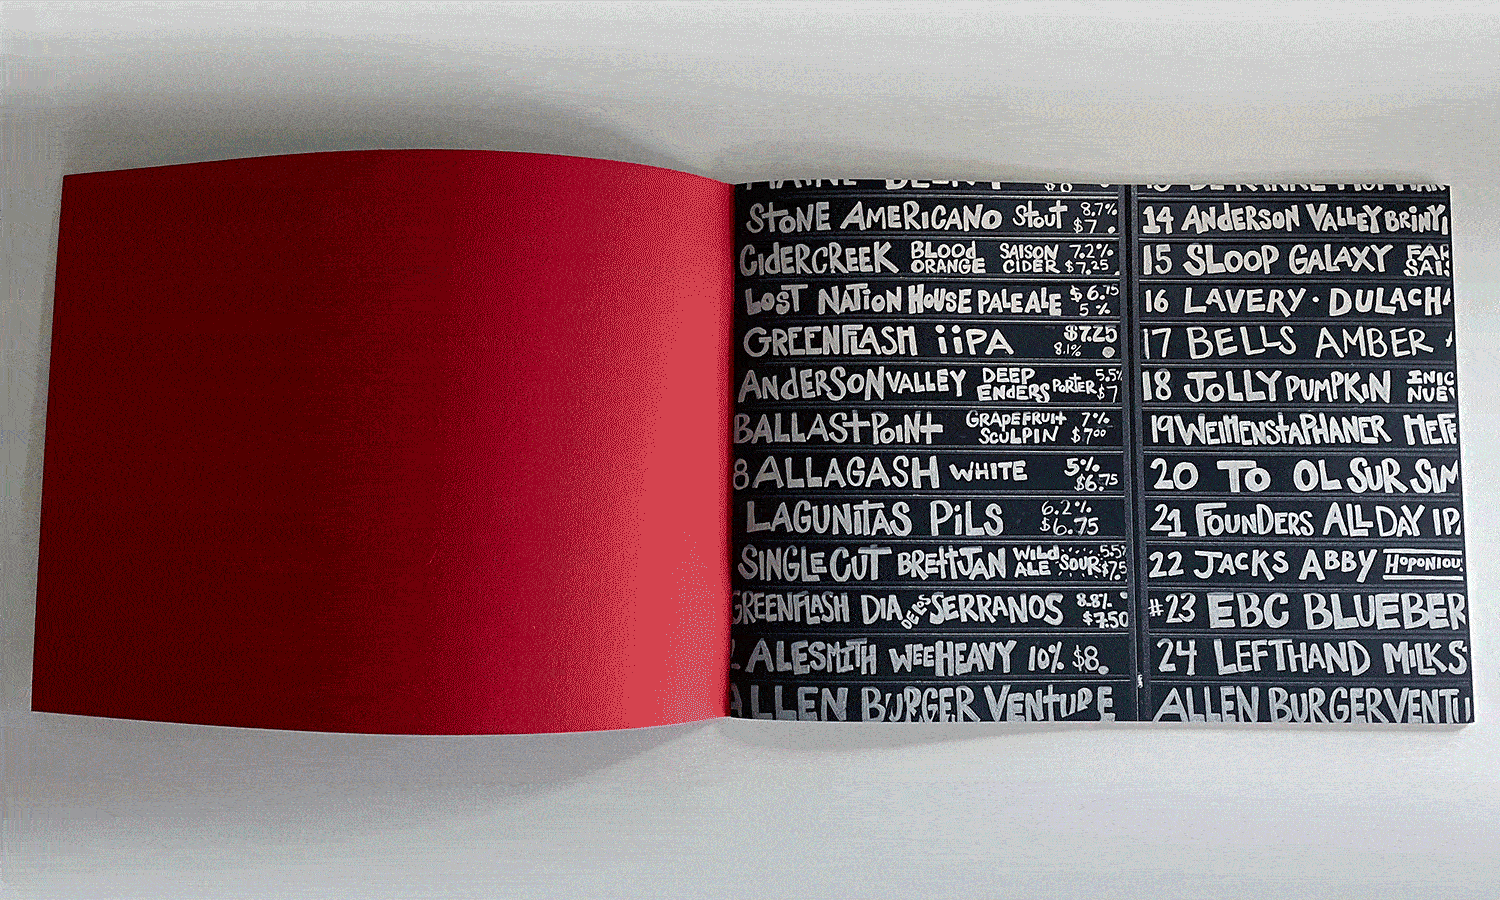 STONE AMERICANO Stout 8.7% $7
CIDERCREEK BLOOD ORANGE SAISON CIDER 7.2% $7.25
LOST NATION HOUSE PALE ALE $6.75 5%
GREENFLASH iiPA $7.25 8.1%
ANDERSON VALLEY DEEP ENDERS PORTER 5.5% $7
BALLAST POINT GRAPEFRUIT SCULPIN 7% $7.00
8 ALLAGASH WHITE 5% $6.75
LAGUNITAS PILS 6.2% $6.75
SINGLE CUT BRETT JAN WILD ALE SOUR 5.5% $7.5
GREENFLASH DIA DE LOS SERRANOS 8.8% $7.50
ALESMITH WEE HEAVY 10% $8.
ALLEN BURGER VENTURE
14 ANDERSON VALLEY BRINY
15 SLOOP GALAXY
16 LAVERY · DULACH
17 BELLS AMBER
18 JOLLY PUMPKIN
19 WEIHENSTAPHANER HEFE
20 TO OL SUR SIM
21 FOUNDERS ALL DAY IPA
22 JACKS ABBY HOPONIOUS
#23 EBC BLUEBER
24 LEFTHAND MILKS
ALLEN BURGER VENTU